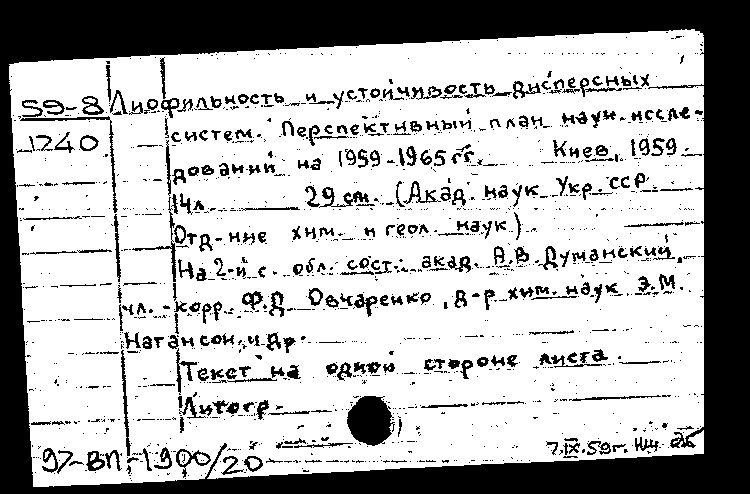 59-8 Лиофильность и устойчивость дисперсных
1240 систем. Перспективный план науч. иссле-
дований на 1959-1965 гг. Киев, 1959.
14л. 29 см. (Акад. наук Укр. ССР.
Отд-ние хим. и геол. наук).
На 2-й с. обл. сост.: акад. А.В. Думанский,
чл.-корр. Ф.Д. Овчаренко, д-р хим. наук Э.М.
Натансон и др.
Текст на одной стороне листа.
Литогр.
97-ВП-1900/20 7.IX.59г.